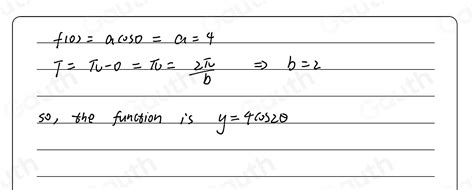 f(0) = a cos 0 = a = 4
T = π - 0 = π = 2π/b ⇒ b = 2
so, the function is y = 4 cos 2θ